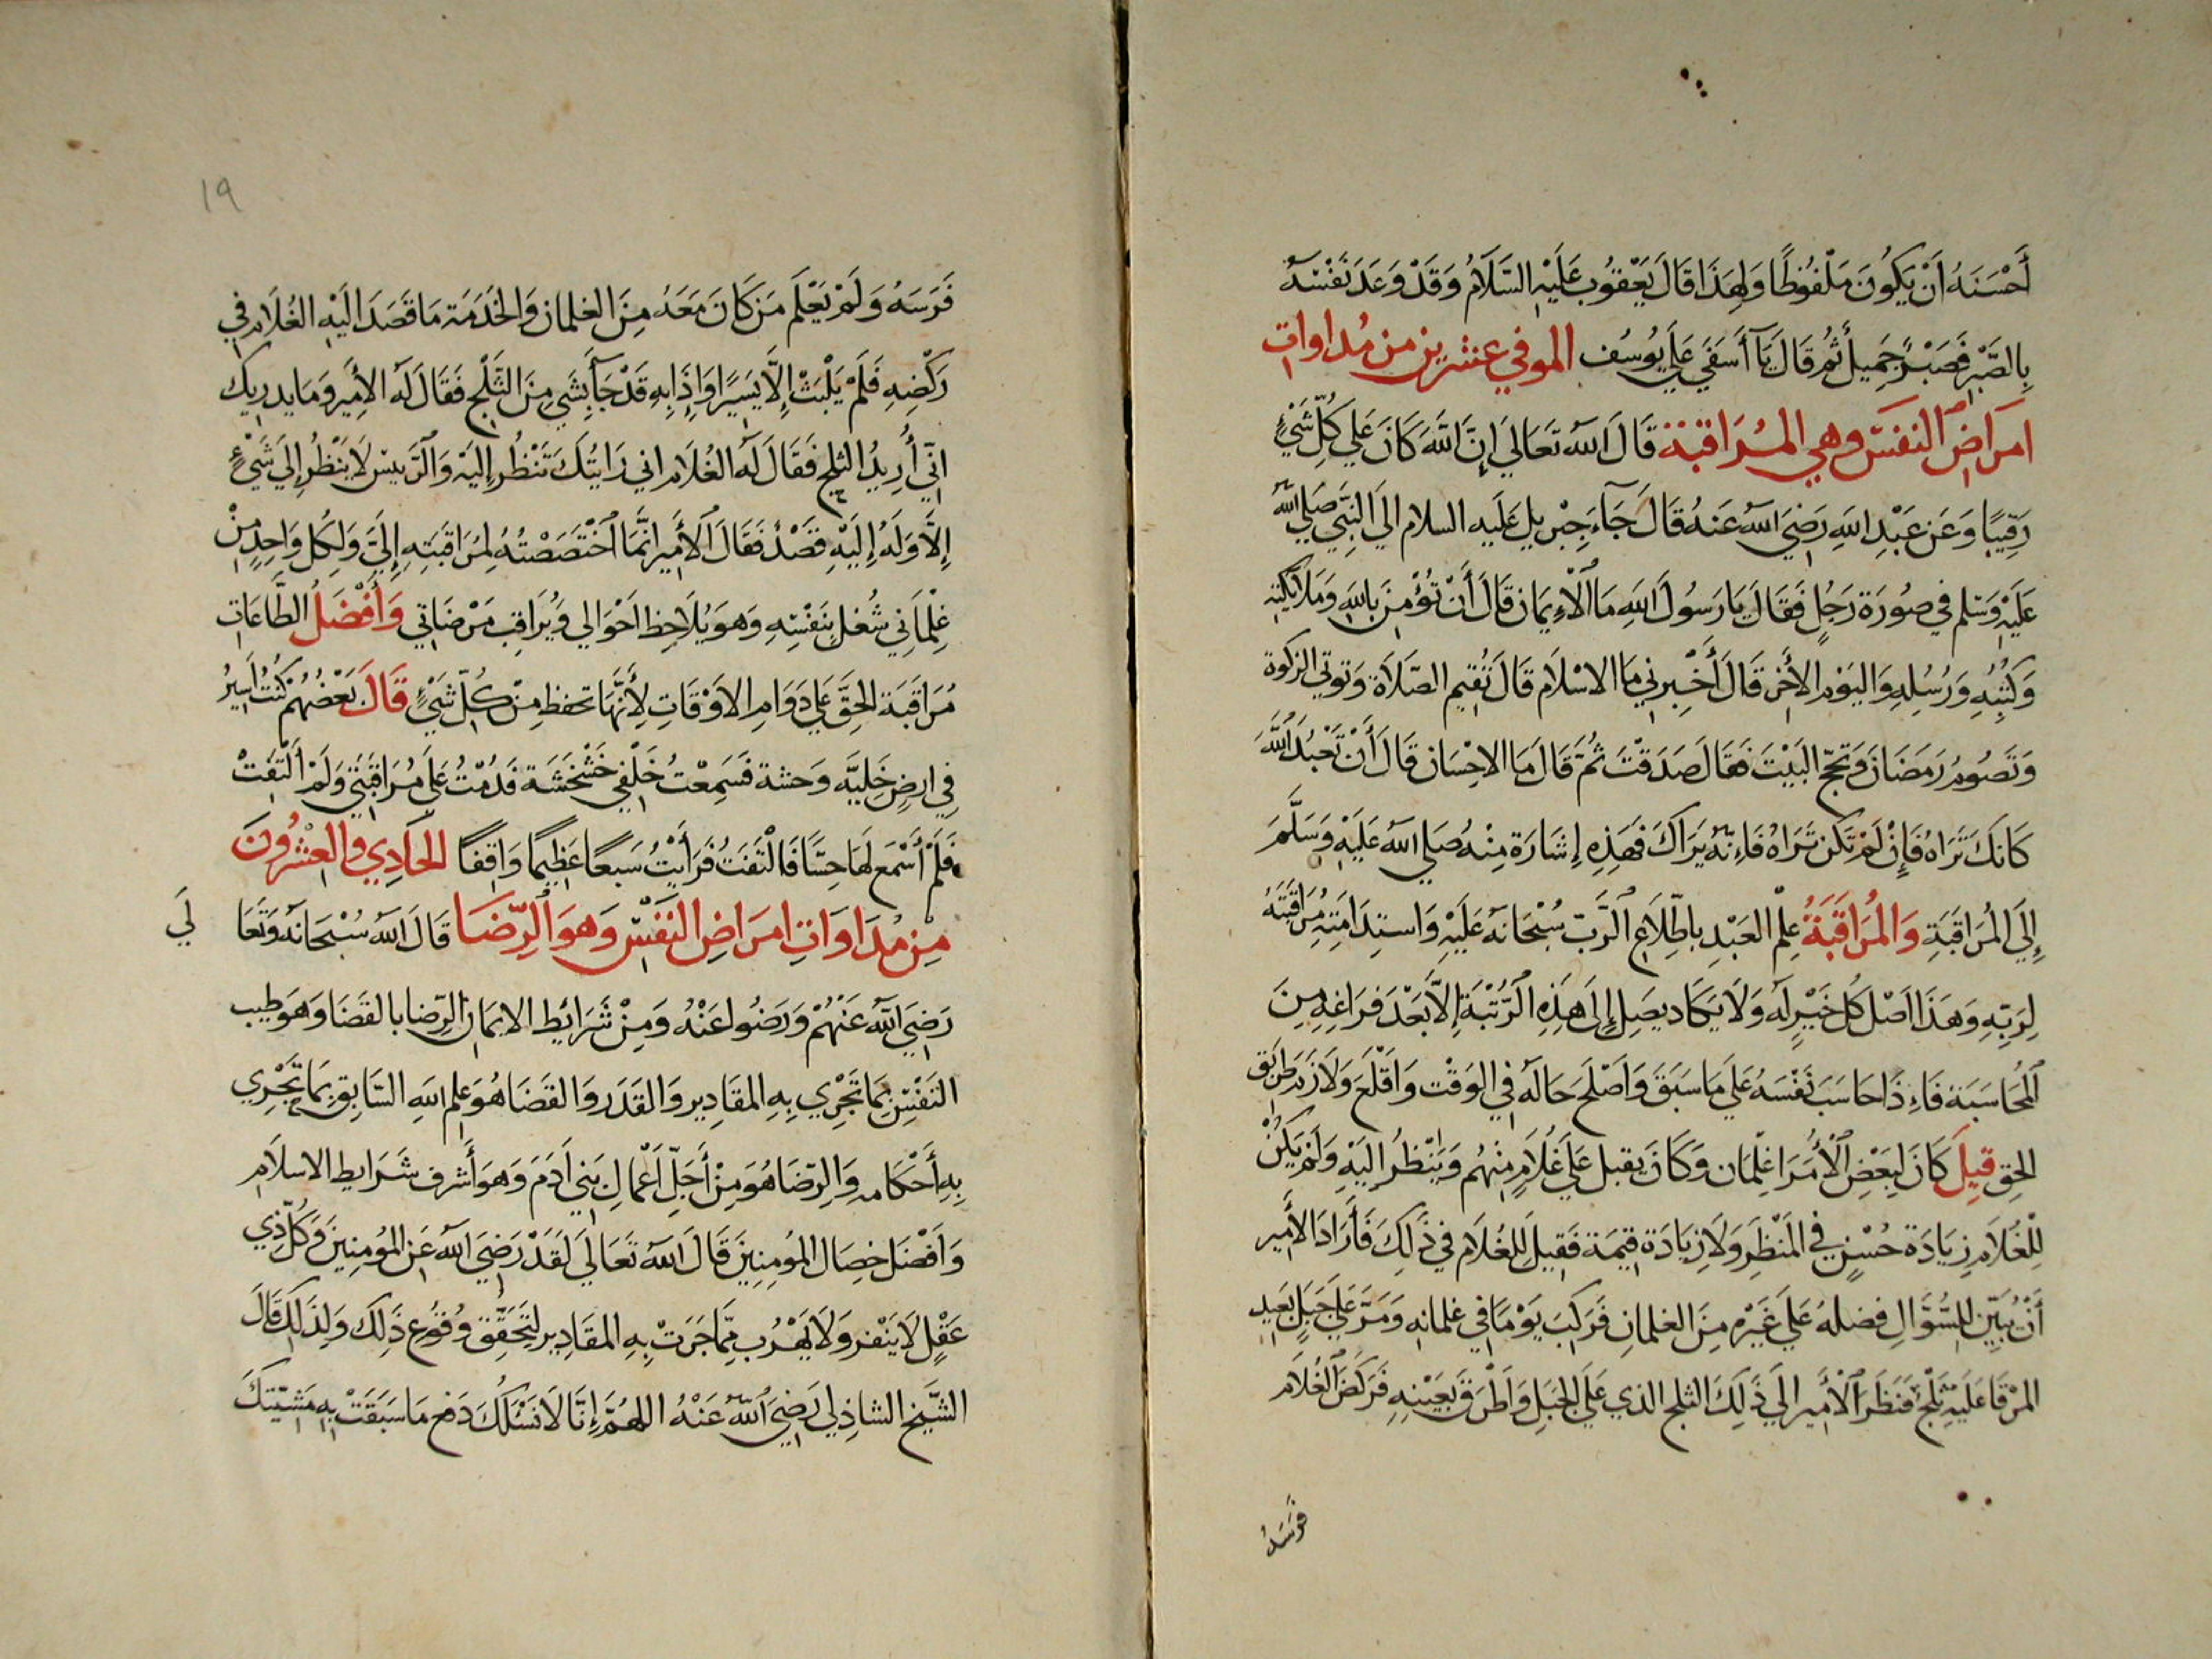 أَحْسَنَهُ أَنْ يَكُونَ مَلْفُوظًا وَلِهَذَا قَالَ يَعْقُوبُ عَلَيْهِ السَّلَامُ وَقَدْ وَعَدَ نَفْسَهُ
بِالصَّبْرِ فَصَبْرٌ جَمِيلٌ ثُمَّ قَالَ يَآ أَسَفَي عَلَي يُوسُف الموفي عشرين من مُداوات
امراض النفس وهي المُرَاقبَة قَالَ اللهُ تَعَالَي إِنَّ اللَّهَ كَانَ عَلي كُلِّ شَيْءٍ
رَقِيبًا وَعَن عَبْدِ اللهِ رَضِيَ اللهُ عَنهُ قَالَ جَآءَ جِبْرِيل عَلَيه السلام الَي النَبِيّ صَلي اللهُ
عَلَيْهِ وَسَلم في صُورَة رَجُلٍ فَقَالَ يَا رَسُولَ اللهِ مَا الْاءِيمَان قَالَ أَنْ تُؤْمِنَ بِاللهِ وَمَلَآئِكَتِهِ
وَكُتُبِهِ وَرُسُلِهِ وَاليَوْمِ الأخِر قَالَ أَخْبِرنِي مَا الاسْلَام قَالَ تُقِيم الصَّلَاةَ وَتوتي الزكوة
وَتَصُومُ رَمَضَانَ وَتَحجّ البَيْتَ فَقَالَ صَدَقْتَ ثُمَّ قَالَ مَا الاحْسَان قَالَ أَنْ تَعْبُدَ اللهَ
كَانَكَ تَرَاهُ فَإِنْ لَمْ تَكُن تَرَاهُ فَاءِنّهُ يَرَاكَ فَهَذِهِ إِشَارَة مِنْهُ صَلي اللهُ عَلَيْهِ وَسَلَّمَ
إِلَى المُرَاقَبَةِ وَالمُرَاقَبَةُ عِلْمُ العَبْدِ بِاطِّلَاعِ الرَّبّ سُبْحَانهُ عَلَيْهِ وَاستِدَامَتِهِ مُرَاقَبَتَهُ
لِرَبِّهِ وَهَذَا اصْل كُل خَيْرٍ لَهُ وَلَا يَكَاد يصِل إِلَى هَذِهِ الرُّتْبَةِ إِلاَّ بَعْدَ فَرَاغِهِ مِنَ
المُحَاسَبَة فَاءِذَا حَاسَبَ نَفْسَهُ عَلَي مَا سَبَقَ وَاَصْلَحَ حَالهُ في الوَقْت وَاقْلَعَ وَلَازَمَ طَرِيق
الحق قِيلَ كَانَ لِبَعْضِ الأُمَرَا غِلْمَان وَكَانَ يقبل عَلَي غُلَامٍ مِنْهُم وَيَنْظُر اِلَيْهِ وَلَمْ يَكُنْ
لِلْغُلَامِ زِيَادَة حُسْنٍ في المَنْظَرِ وَلَا زِيَادَة قِيمَة فَقِيلَ لِلغُلَام في ذَلِكَ فَأَرَادَ الأَمِير
أَنْ يُبَيِّن لِلسُّؤَّالِ فضلهُ عَلَي غَيْرِهِ مِنَ الغلمَانِ فَرَكبَ يَوْمًا في غلمانه وَمَرَّ عَلي جَبَلٍ بَعِيدِ
المرْقَا عَلَيْهِ ثَلْجٌ فَنَظَرَ الْأَمِير الَي ذَلِكَ الثلج الذي عَلَي الجَبَلِ وَأَطْرَقَ بِعَيْنِهِ فَرَكَضَ الغُلَام
فَرَسَهُ
١٩
فَرَسَهُ وَلَمْ يَعْلَم مَن كَانَ مَعَهُ مِنَ الغلمان وَالخَدَمَة مَا قَصَدَ الَيْهِ الغُلَام في
رَكْضِهِ فَلَمْ يَلْبَثْ إِلاَّ يَسِيرًا وَإِذَا بِهِ قَدْ جَآءَ بِشَي مِنَ الثَّلْجِ فَقَالَ لَهُ الأَمِير وَمَا يدريك
انِّي أُرِيدُ الثلج فَقَالَ لَهُ الغُلَام اني رَايتُكَ تَنْظُر إِلَيْهِ وَالرَّييس لَا يَنْظُر إِلي شَيْءٍ
إِلاَّ وَلَهُ إِلَيْهِ قصْدٌ فَقَالَ الأَمِير انَّمَا اخْتَصَصْتُهُ لِمُرَاقَبَتِهِ إِلَيَّ وَلِكُل وَاحِدٍ مِنْ
غِلْمَانِي شُغل بِنَفْسِهِ وَهوَ يُلَاحِظ احْوَالي وَيُرَاقِب مَرْضَاتي وَأَفْضَلُ الطَّاعَات
مُرَاقَبَة الحَقّ عَلَي دَوَامِ الاوْقَاتِ لِأَنَّهَا تحفظ مِنْ كُلِّ شَيْءٍ قَالَ بَعْضُهُمْ كُنْتُ أَسِيرُ
فِي ارضٍ خَلِيَّه وَحشة فَسَمِعْتُ خَلْفِي خَشْخَشَة فَدُمْتُ عَلَى مُرَاقَبَتِي وَلَمْ أَلْتَفتْ
فَلَمْ أَسْمَع لَهَا حِسًّا فَالْتَفَتُّ فَرَأَيْتُ سَبعًا عَظِيمًا وَاقِفًا الحَادِي وَالعِشْرُونَ
مِنْ مُدَاوَاتِ امرَاضِ النَفْسِ وَهوَ الرِّضَا قَالَ اللهُ سُبْحَانهُ وَتَعَا لَي
رَضِيَ اللهُ عَنْهُمْ وَرَضُوا عَنْهُ وَمِنْ شَرَائط الايمَان الرِّضا بالقَضَا وَهوَ طِيب
النَفْسِ بِمَا تَجْرِي بِهِ المقَادِير وَالقَدَر وَالقَضَا هُوَ عِلم اللهِ السَّابِق بِمَا تَجْرِي
بِهِ أَحْكَامه وَالرِّضَا هُوَ مِنْ أَجَلِّ أَعْمالِ بَنِي آدَمَ وَهوَ أَشرف شَرَايط الاسلَام
وَاَفْضَل خِصَال المُؤمِنِينَ قَالَ اللهُ تَعَالَي لَقَدْ رَضِيَ اللهُ عَن المُؤمِنِينَ وَكُلّ ذِي
عَقْلٍ لَا يَنْفر وَلَا يَهْرُب مِمَّا جَرَتْ بِهِ المقَادِير لِتَحَقُّق وُقُوع ذَلِكَ وَلِذَلكَ قَالَ
الشَّيخ الشاذِلي رَضِيَ اللهُ عَنْهُ اللهُمَّ إِنَّا لَا نَسْئَلُكَ دَفع مَا سَبَقَتْ بِهِ مَشيّتكَ